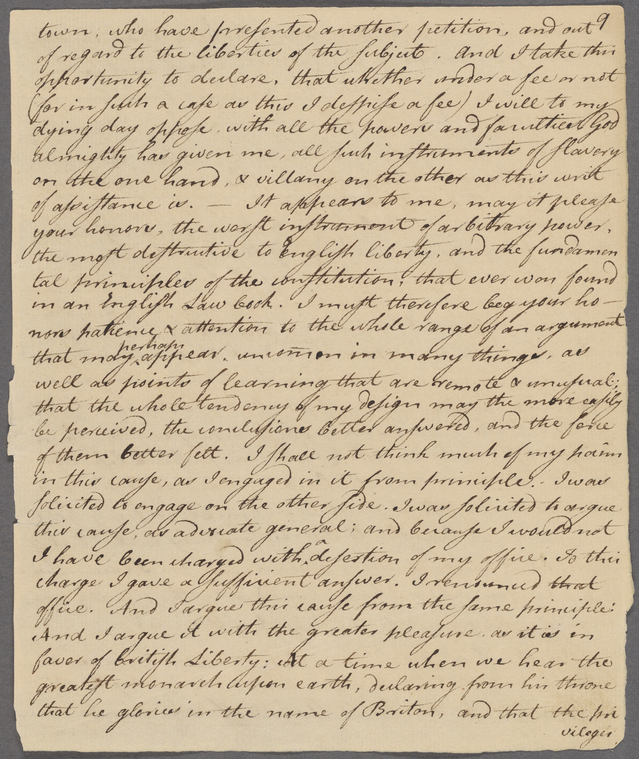 9
town, who have presented another petition, and out
of regard to the liberties of the subject. And I take this
opportunity to declare, that whether under a fee or not
(for in such a case as this I despise a fee) I will to my
dying day oppose, with all the powers and faculties God
almighty has given me, all such instruments of slavery
on the one hand, & villany on the other as this writ
of assistance is. — It appears to me, may it please
your honors, the worst instrument of arbitrary power,
the most destructive to English liberty, and the fundamen
tal principles of the constitution, that ever was found
in an English Law book. I must therefore beg your ho-
nors patience & attention to the whole range of an argument
that may perhaps appear uncom̄on in many things, as
well as points of learning that are remote & unusual;
that the whole tendency of my design may the more easily
be perceived, the conclusions better answered, and the force
of them better felt. I shall not think much of my pains
in this cause, as I engaged in it from principle. I was
solicited to engage on the other side. I was solicited to argue
this cause, as advocate general; and because I would not
I have been charged with a desertion of my office. To this
charge I gave a sufficient answer. I renounced that
office. And I argue this cause from the same principle:
And I argue it with the greater pleasure as it is in
favor of British Liberty; At a time when we hear the
greatest monarch upon earth, declaring from his throne
that he glories in the name of Briton, and that the pri
vileges